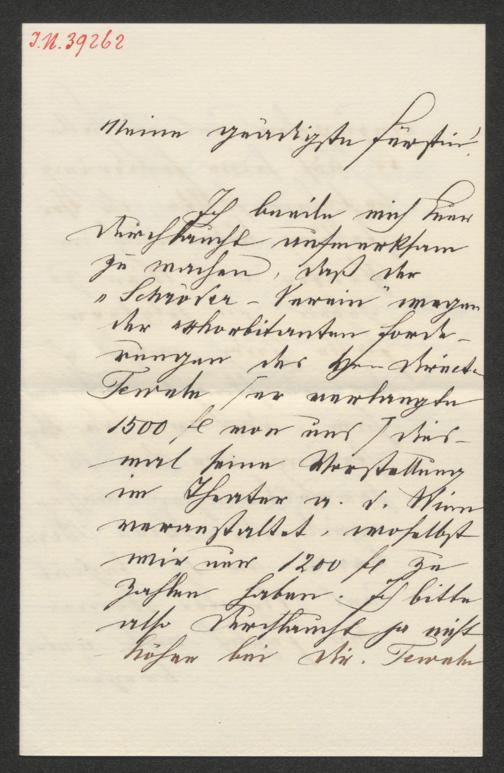 I.N. 39262
Meine gnädigste Fürstin!
Ich beeile mich Euer
Durchlaucht aufmerksam
zu machen, daß der
„Schröder-Verein" wegen
der exhorbitanten Forde-
rungen des Hrn Direct.
Tewele (er verlangte
1500 fl von uns) dies-
mal seine Vorstellung
im Theater a. d. Wien
veranstaltet, woselbst
wir nur 1200 fl zu
zahlen haben. Ich bitte
also Durchlaucht ja nicht
höher bei Dir. Tewele